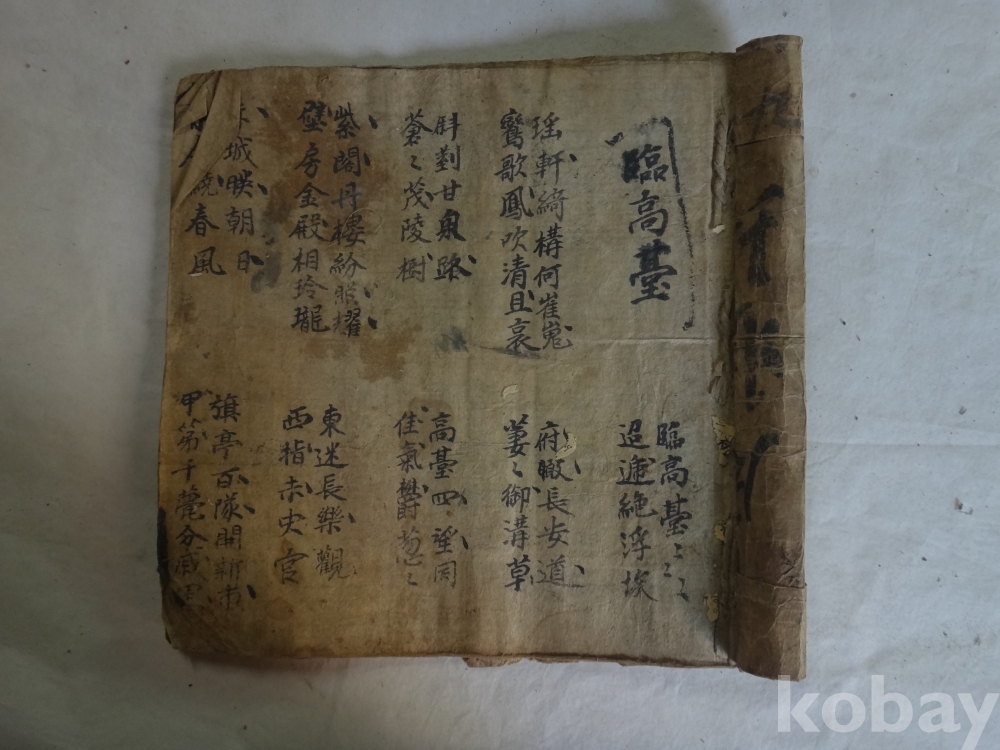 臨高臺
臨高臺〻〻
迢遞絶浮埃
瑶軒綺構何崔嵬
鸞歌鳳吹清且哀
府瞰長安道
萋〻御溝草
斜對甘泉路
蒼〻茂陵樹
高臺四望同
佳氣欝葱〻
紫閣丹樓紛照耀
壁房金殿相玲瓏
東迷長樂觀
西指未央宮
赤城映朝日
春風
旗亭百隊開新市
甲第千甍分戚里
kobay